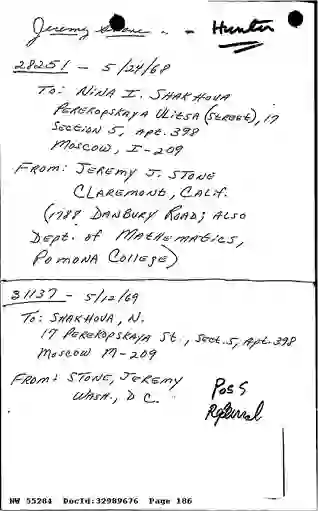 Jeremy Stone - - Hunter
28251 - 5/24/68
To: NINA I. SHAKHOVA
PEREKOPSKAYA ULITSA (STREET), 17
SECTION 5, APT. 398
MOSCOW, I-209
FROM: JEREMY J. STONE
CLAREMONT, CALIF.
(1788 DANBURY ROAD; ALSO
DEPT. OF MATHEMATICS,
POMONA COLLEGE)
31137 - 5/12/69
To: SHAKHOVA, N.
17 PEREKOPSKAYA ST., SECT. 5, APT. 398
MOSCOW M-209
FROM: STONE, JEREMY
WASH., D C.
Poss
Referral
NW 55284 DocId:32989676 Page 186